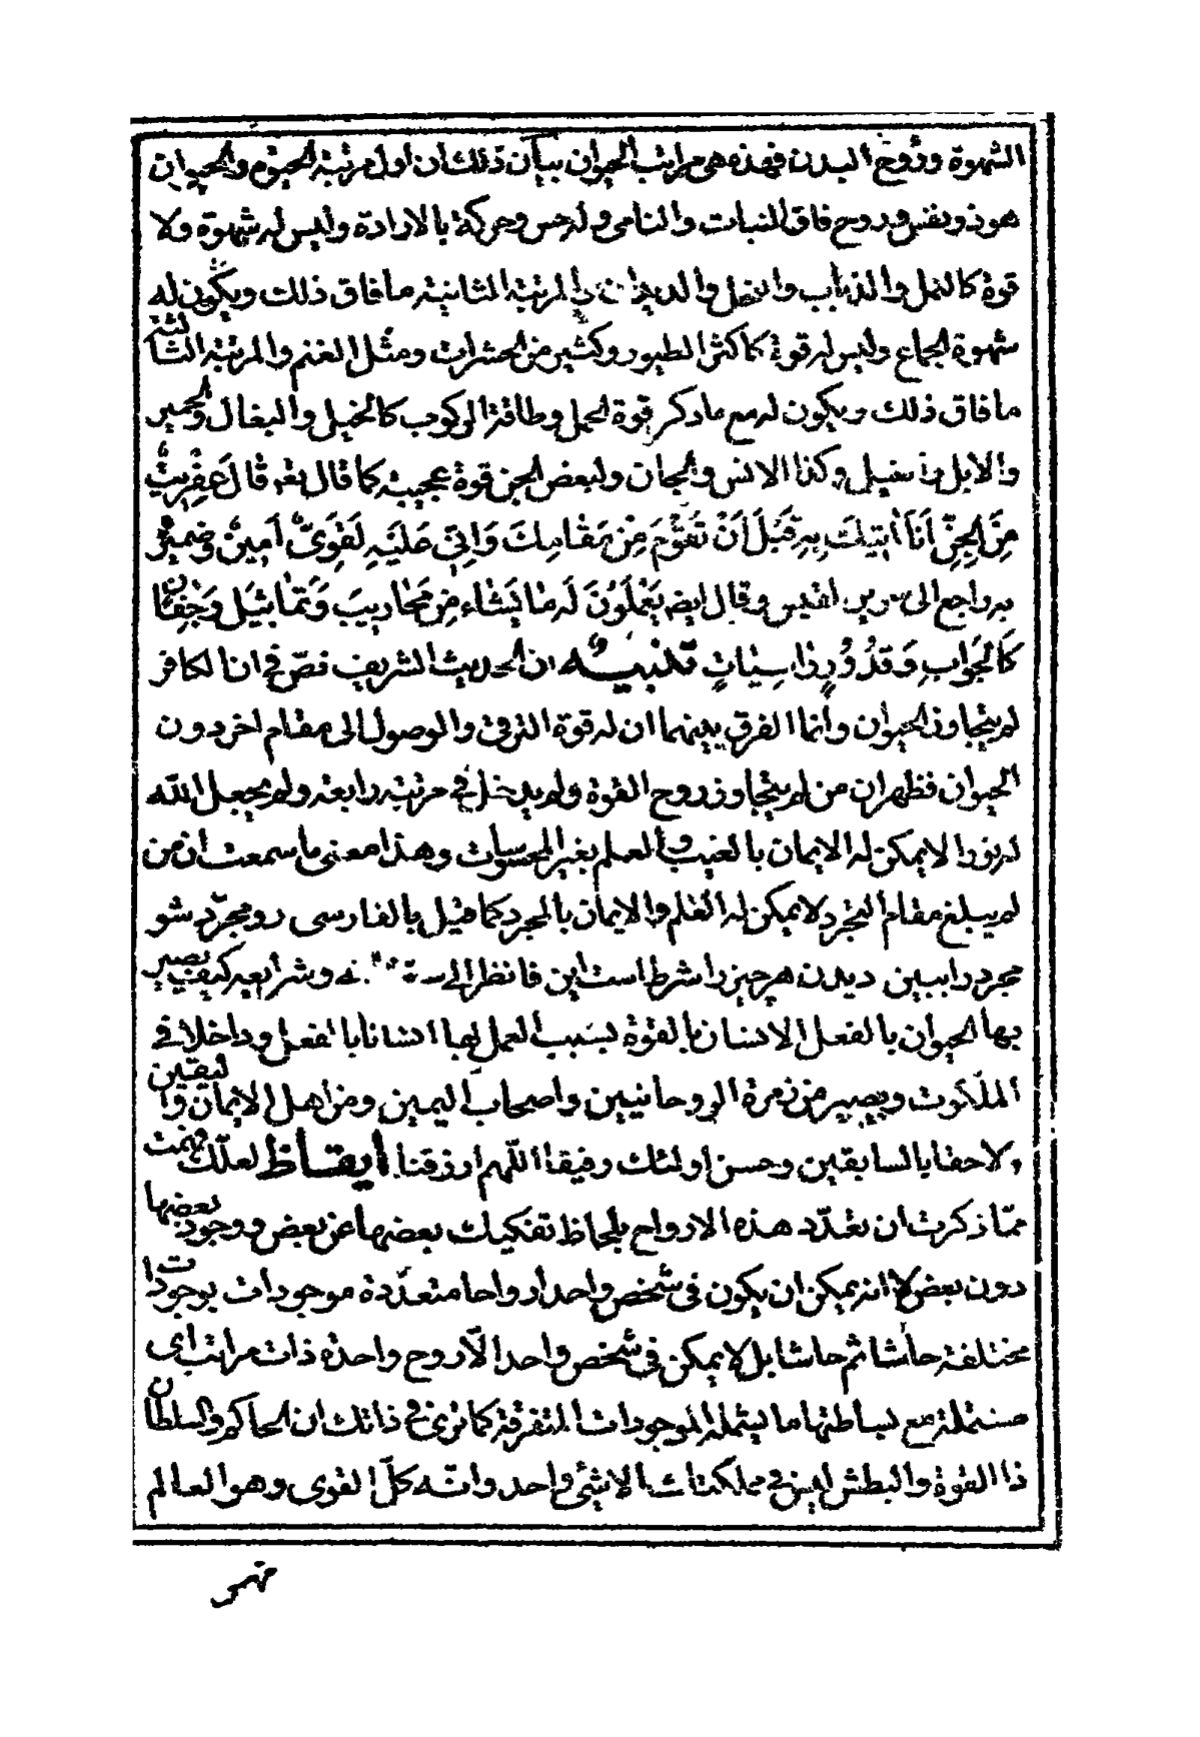 الشهوة وروح البدن فهذه هى مراتب الحيوان بيان ذلك ان اول مرتبة الحيوم والحيوان
هو ذو نفس وروح فاق النبات والنامى وله حس وحركة بالارادة وليس له شهوة ولا
قوة كالنمل والذباب والنحل والديدان والمرتبة الثانية ما فاق ذلك ويكون له
شهوة الجماع وليس له قوة كاكثر الطيور وكثير من الحشرات ومثل الغنم والمرتبة الثالثة
ما فاق ذلك ويكون له مع ما ذكر قوة الحمل وطاقة الركوب كالخيل والبغال والحمير
والابل والفيل وكذا الانس والجان ولبعض الجن قوة عجيبة كما قال تعه قَالَ عِفْرِيتٌ
مِنَ الجِنِّ اَنَا اٰتِيكَ بِهِ قَبْلَ اَنْ تَقُومَ مِنْ مَقَامِكَ وَاِنِّي عَلَيْهِ لَقَوِيٌّ اَمِينٌ وضمير
به راجع الى سرير بلقيس وقال ايضه يَعْمَلُونَ لَهُ مَا يَشَاءُ مِنْ مَحَارِيبَ وَتَمَاثِيلَ وَجِفَانٍ
كَالجَوَابِ وَقُدُورٍ رَاسِيَاتٍ تنبيه ان الحديث الشريف نصّ فى ان الكافر
لم يتجاوز الحيوان وانما الفرق بينهما ان له قوة الترقى والوصول الى مقام اخر دون
الحيوان فظهر ان من لم يتجاوز روح القوة ولم يدخل فى مرتبة رابعة ولم يجعل الله
له نورا لا يمكن له الايمان بالغيب والعلم بغير المحسوسات وهذا معنى ما سمعت ان من
لم يبلغ مقام التجرد لا يمكن له العلم والايمان بالمجرد كما قيل بالفارسى رو مجرّد شو
مجرد را ببين ديدن هر چيز را شرط است اين فانظر الى وشرايعه كيف يصير
بها الحيوان بالفعل الانسان بالقوة بسبب العمل بها انسانا بالفعل وداخلا فى
الملكوت ويصير من زمرة الروحانيين واصحاب اليمين ومن اهل الايمان واليقين
ولاحقا بالسابقين وحسن اولئك رفيقا اللّهم ارزقنا. ايقاظ لعلّك فهمت
ممّا ذكرت ان تعدّد هذه الارواح بلحاظ تفكيك بعضها عن بعض ووجود بعضها
دون بعض لا انه يمكن ان يكون فى شخص واحد ارواحا متعدّدة موجودات بوجودات
مختلفة حاشا ثم حاشا بل لا يمكن فى شخص واحد الّا روح واحدة ذات مراتب اى
مشتملة مع بساطتها ما يشمله الموجودات المتفرقة كما ترى فى ذاتك ان الحاكم والسلطان
ذا القوة والبطش ليس فى مملكتك الا شئ واحد وانّه كلّ القوى وهو العالم